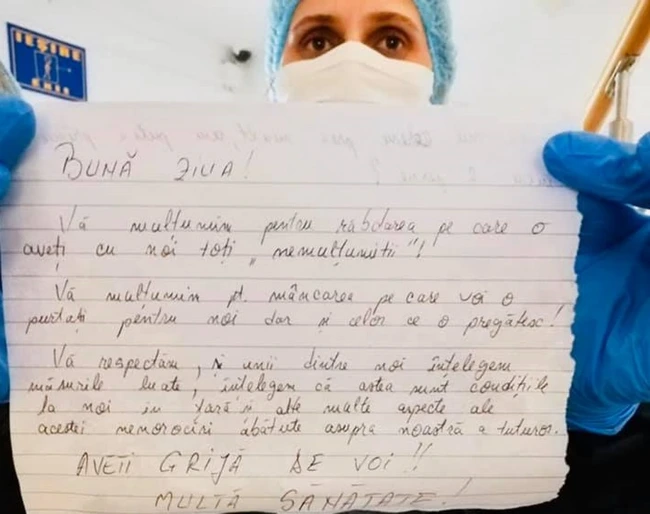 IEȘIRE
EXIT
BUNĂ ZIUA!
Vă mulțumim pentru răbdarea pe care o
aveți cu noi toți „nemulțumiții"!
Vă mulțumim pt. mâncarea pe care voi o
purtați pentru noi dar și celor ce o pregătesc!
Vă respectăm, și unii dintre noi înțelegem
măsurile luate, înțelegem că astea sunt condițiile
la noi în țară și alte multe aspecte ale
acestei nenorociri abătute asupra noastră a tuturor.
AVEȚI GRIJĂ DE VOI!!
MULTĂ SĂNĂTATE!